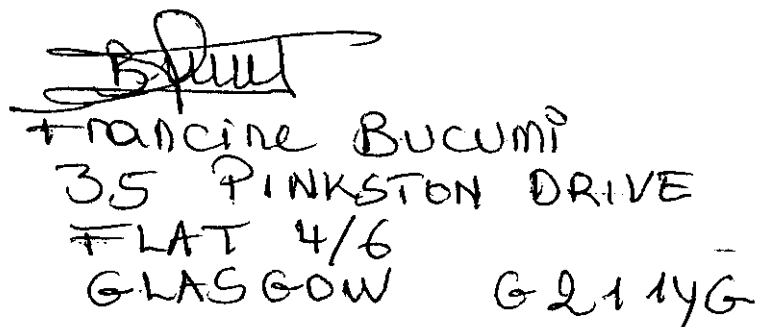 Francine BUCUMI
35 PINKSTON DRIVE
FLAT 4/6
GLASGOW G21 1YG